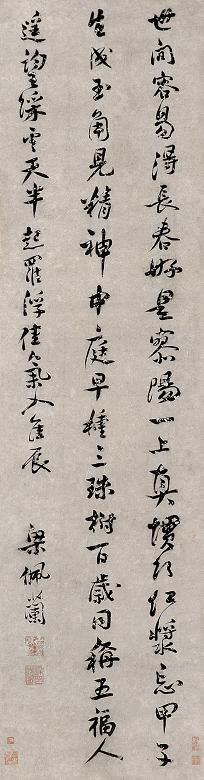 世間容易得長春好是寮陽一上真慣紅漿忘甲子
生成玉角見精神中庭早種三珠樹百歲同稱五福人
遙望綵雲天半起羅浮佳氣入辰
梁佩蘭